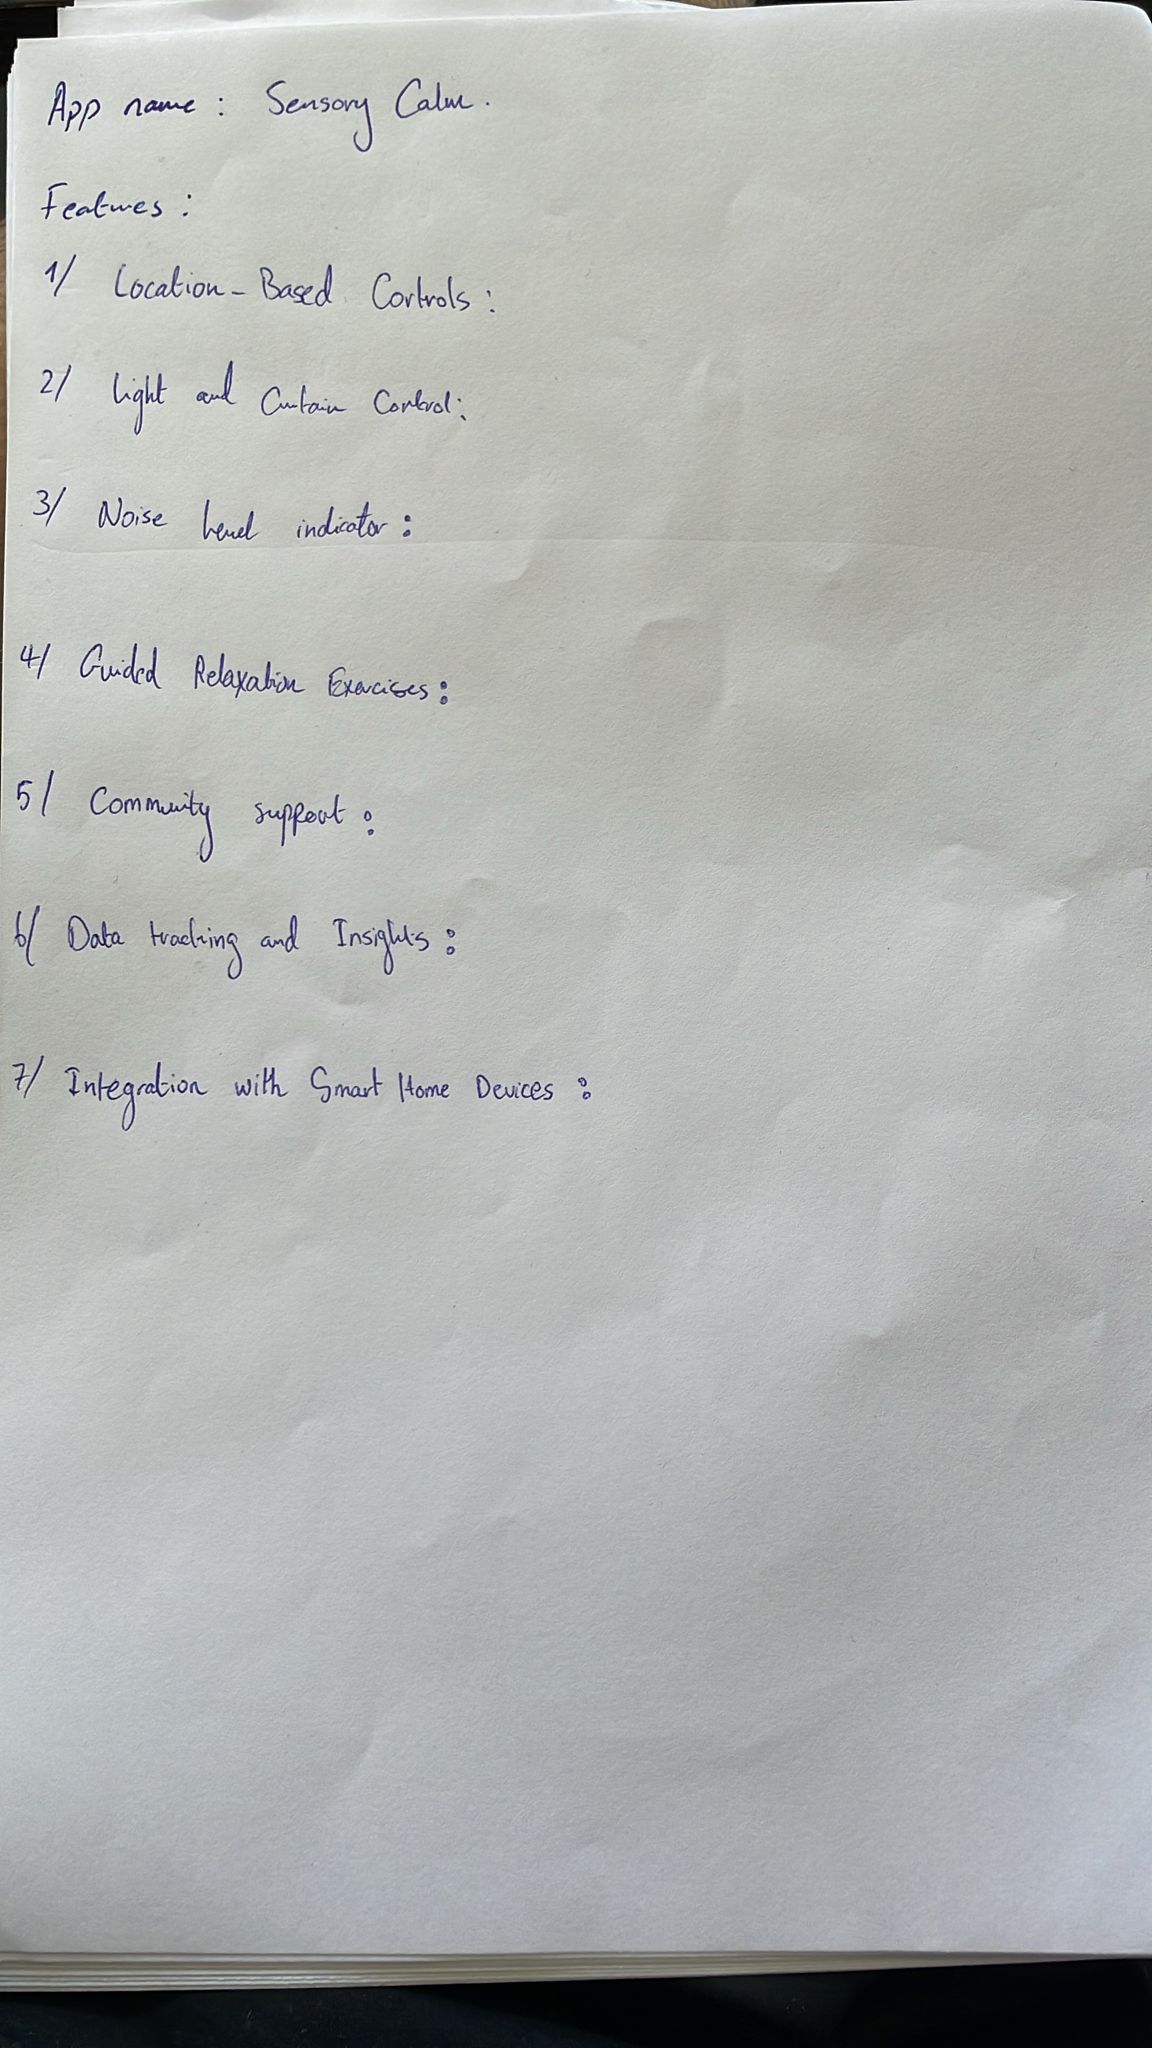 App name : Sensory Calm.
Features :
1/ Location-Based Controls :
2/ Light and Curtain Control :
3/ Noise Level indicator :
4/ Guided Relaxation Exercises :
5/ Community support :
6/ Data tracking and Insights :
7/ Integration with Smart Home Devices :